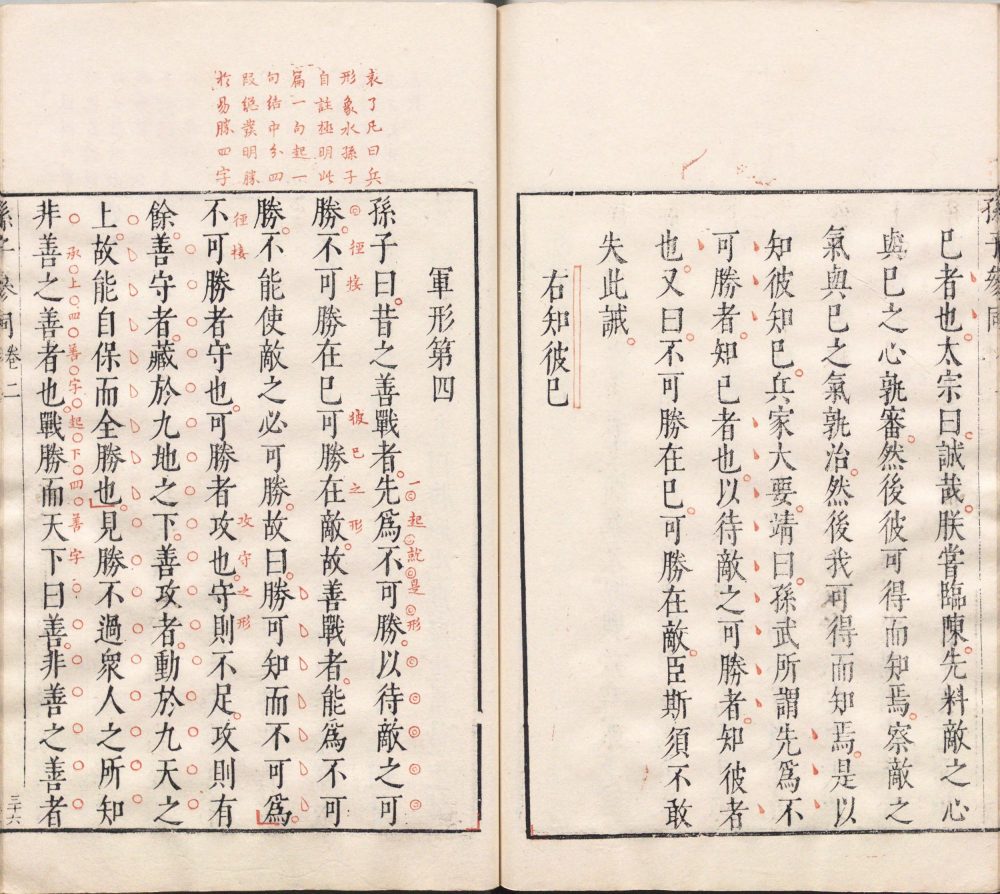 孫子參同
巳者也太宗曰誠哉朕嘗臨陳先料敵之心
與巳之心孰審然後彼可得而知焉察敵之
氣與巳之氣孰治然後我可得而知焉是以
知彼知巳兵家大要靖曰孫武所謂先爲不
可勝者知巳者也以待敵之可勝者知彼者
也又曰不可勝在巳可勝在敵臣斯須不敢
失此誡
右知彼巳
袁了凡曰兵
形象水孫子
自註極明此
篇一句起一
句結中分四
段總發明勝
於易勝四字
軍形第四
孫子曰昔之善戰者先爲不可勝以待敵之可
一起就是形
勝不可勝在巳可勝在敵故善戰者能爲不可
徑接
彼巳之形
勝不能使敵之必可勝故曰勝可知而不可爲
不可勝者守也可勝者攻也守則不足攻則有
徑接
攻守之形
餘善守者藏於九地之下善攻者動於九天之
上故能自保而全勝也見勝不過衆人之所知
非善之善者也戰勝而天下曰善非善之善者
承上四善字起下四善字
孫子參同卷二
三十六